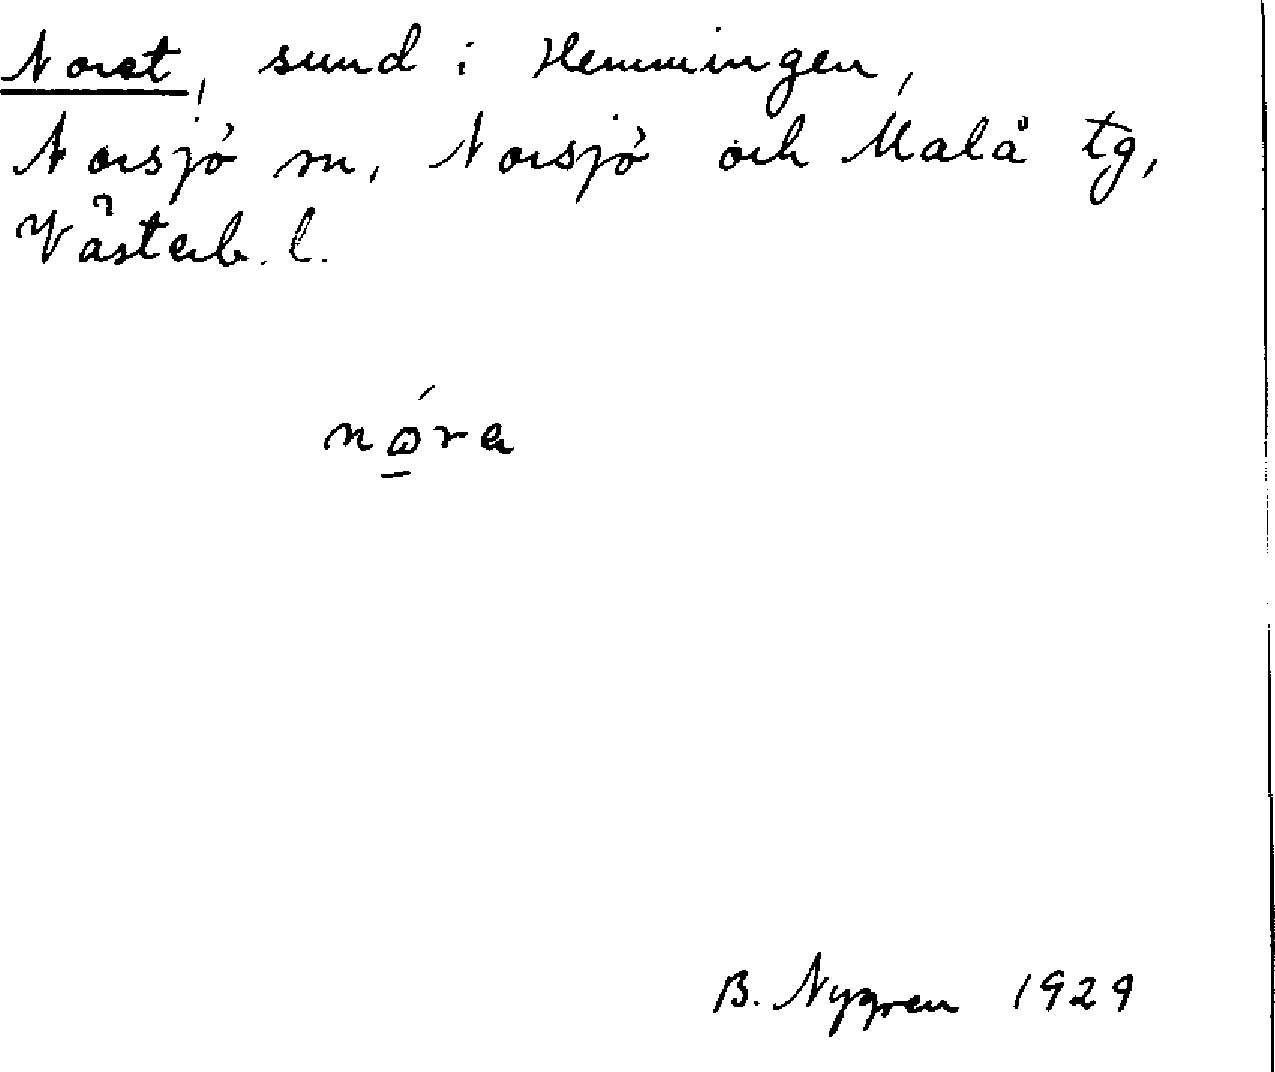 Noret, sund i Hemmingen,
Norsjö sn, Norsjö och Malå tg,
Västerb. l.
nǻ̱ra
B. Nygren 1929